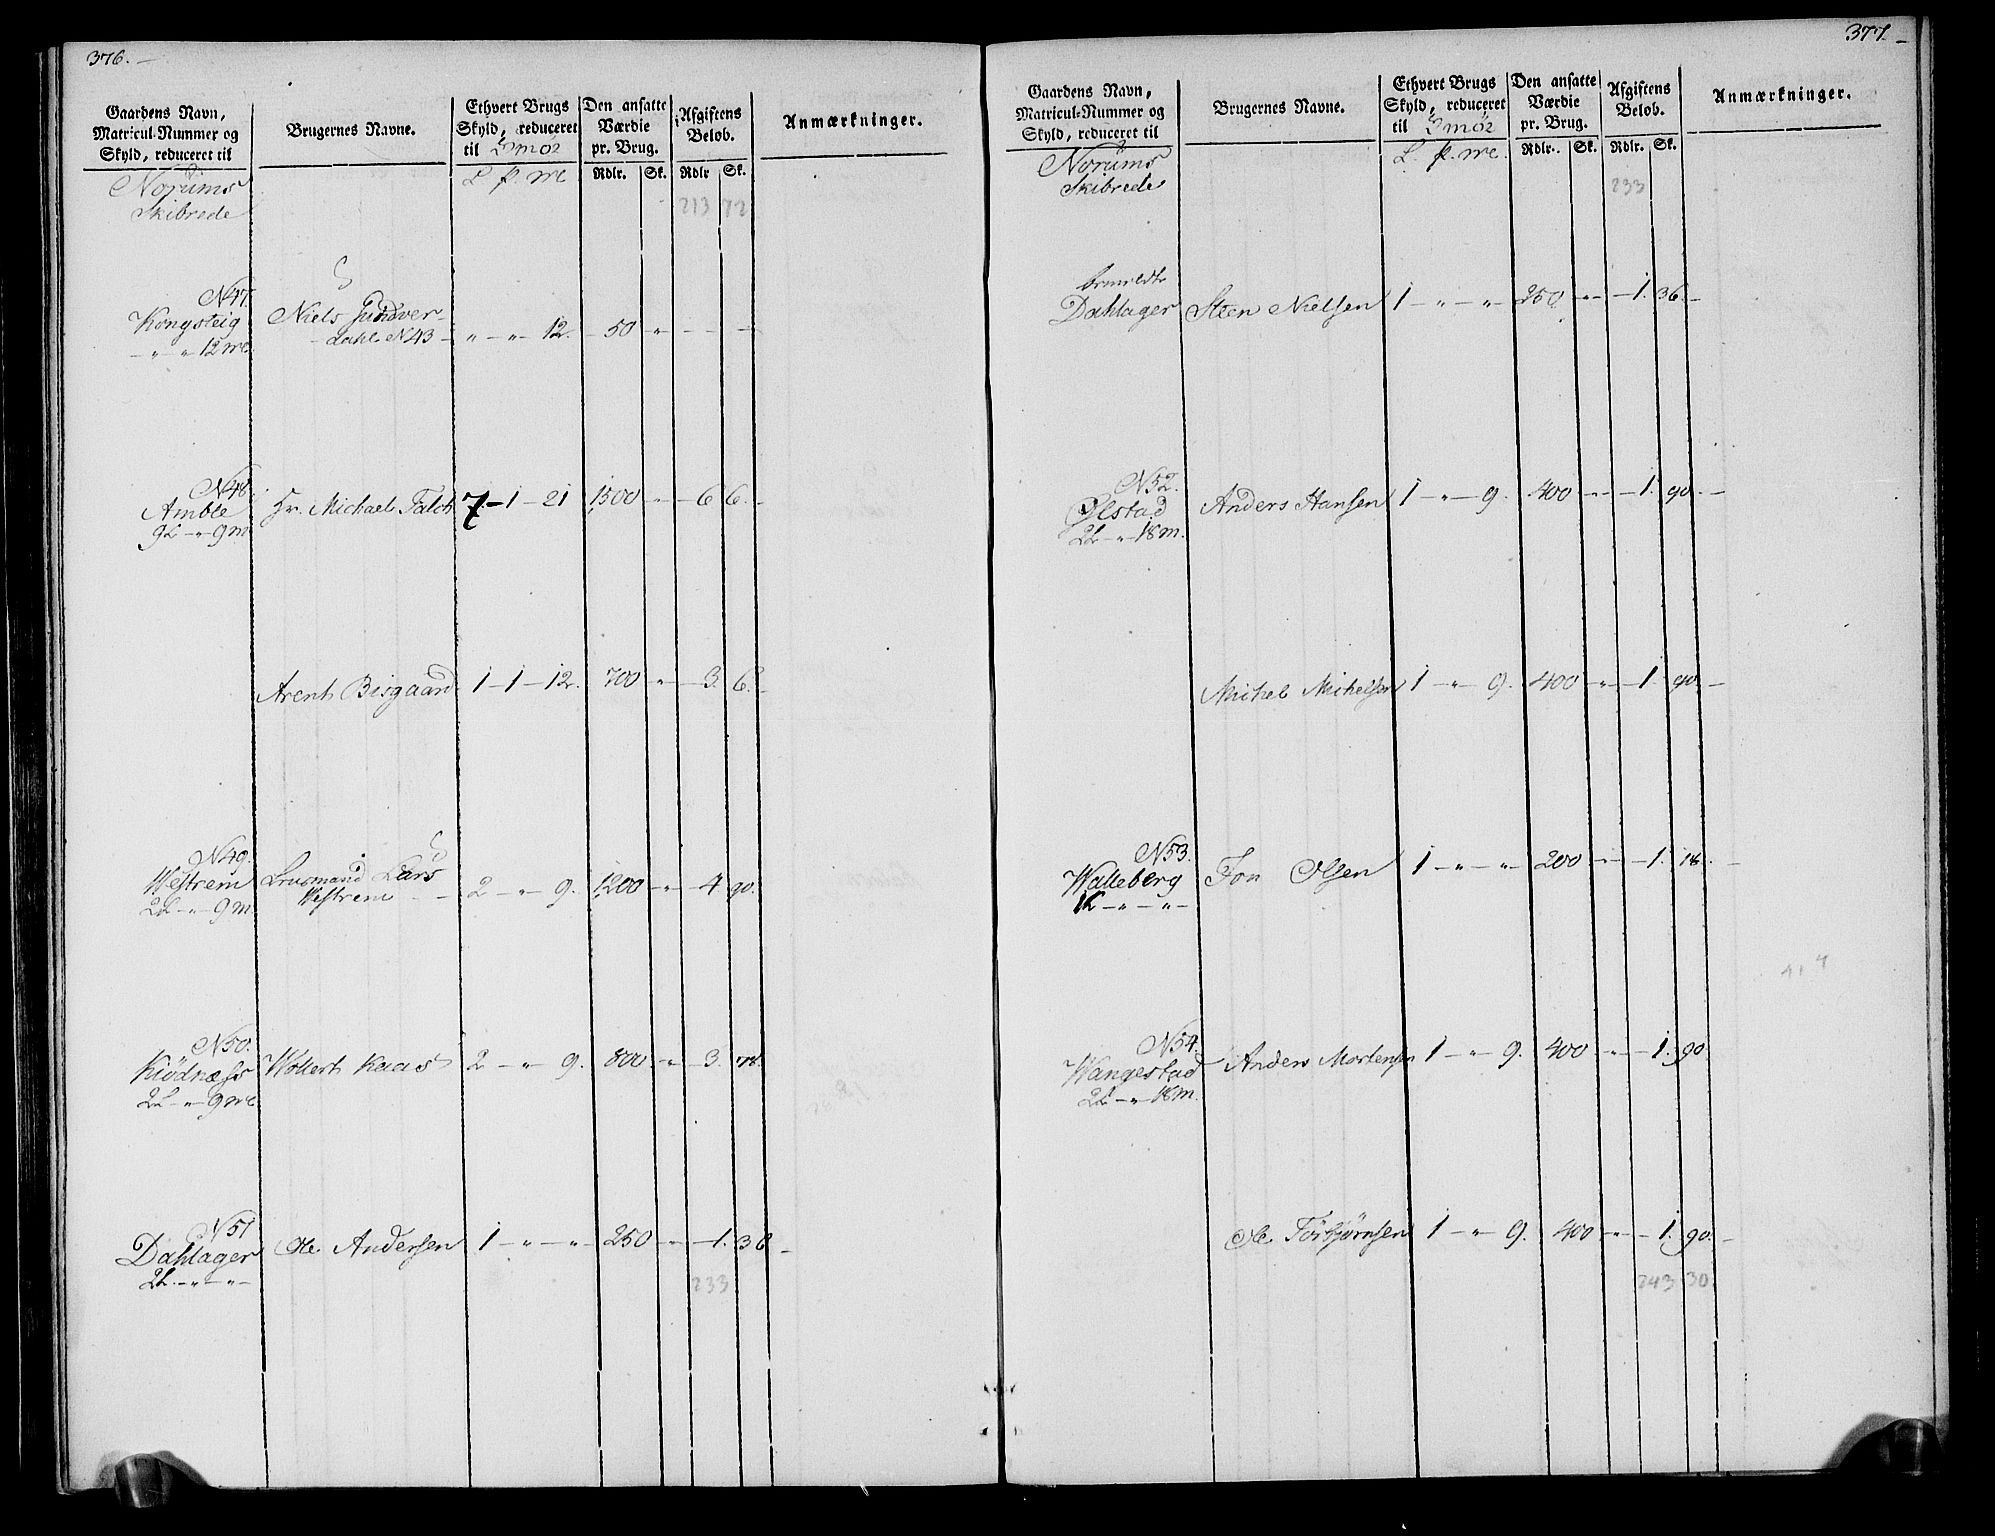 376. —
Gaardens Navn, Matricul-Nummer og Skyld, reduceret til
Brugernes Navne.
Ethvert Brugs Skyld, reduceret til Smör
Den ansatte Værdie pr. Brug.
Afgiftens Beløb.
Anmærkninger.
L. p. mc Rdlr. Sk. Rdlr Sk.
Norums
Skibrede
213 72
N47.
Kongsteig Niels Gundver-
" " 12 mc. dahl N43 - " - " - 12. - 50 " - - -
N48.
Amble Hr. Michael Falch 7 - 1 - 21 1500 - " - 6 6. -
9L - " - 9m
Arent Bisgaard 1 - 1 - 12. 700 " - 3. 6. -
N49.
Westrem Lensmand Lars
2L - " - 9m Westrem - - 2 - " - 9. 1200 - " - 4 90.
N50.
Kiödnæss Wollert Kaas 2 - " - 9. 800. - " - 3. 78.
2L - " - 9 mc.
N51
Dahlager Ole Andersen 1 - " - " - 250 - " - 1. 36 -
2L. - " - " -
233
377. -
Gaardens Navn, Matricul-Nummer og Skyld, reduceret til
Brugernes Navne.
Ethvert Brugs Skyld, reduceret til Smör
Den ansatte Værdie pr. Brug.
Afgiftens Beløb.
Anmærkninger.
L. p. mc. Rdlr. Sk. Rdlr. Sk.
Norums
Skibrede
233
Dahlager Steen Nielsen 1 - " - " - 250 - " - 1. 36. -
N52.
Ølstad Anders Hansen 1 - " - 9. 400 - " - 1. 90. -
2L - " - 18m.
Michel Michelsen 1 - " - 9. 400 - " - 1. 90. -
N53.
Walleberg Jon Olsen 1 - " - " - 200 - " - 1. 18. -
1L - " - " -
N54.
Wangestad Anders Mortensen 1 - " - 9. 400 - " - 1. 90.
2L - " - 18m.
Ole Törbjørnsen 1 - " - 9. 400 - " - 1. 90. -
243 30